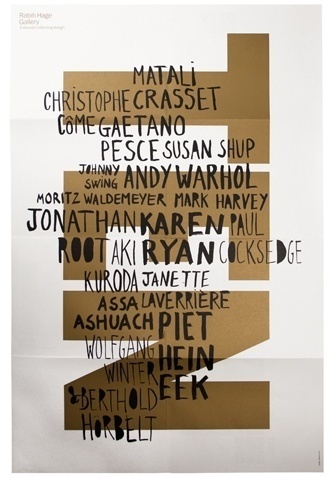 Ralph Hage
Gallery
MATALI
CHRISTOPHE CRASSET
CÔME GAETANO
PESCE SUSAN SHUP
JOHNNY
SWING ANDY WARHOL
MORITZ WALDEMEYER MARK HARVEY
JONATHAN KAREN PAUL
ROOT AKI RYAN COCKSEDGE
KURODA JANETTE
ASSA LAVERRIÈRE
ASHUACH PIET
WOLFGANG HEIN
WINTER EEK
& BERTHOLD
HÖRBELT